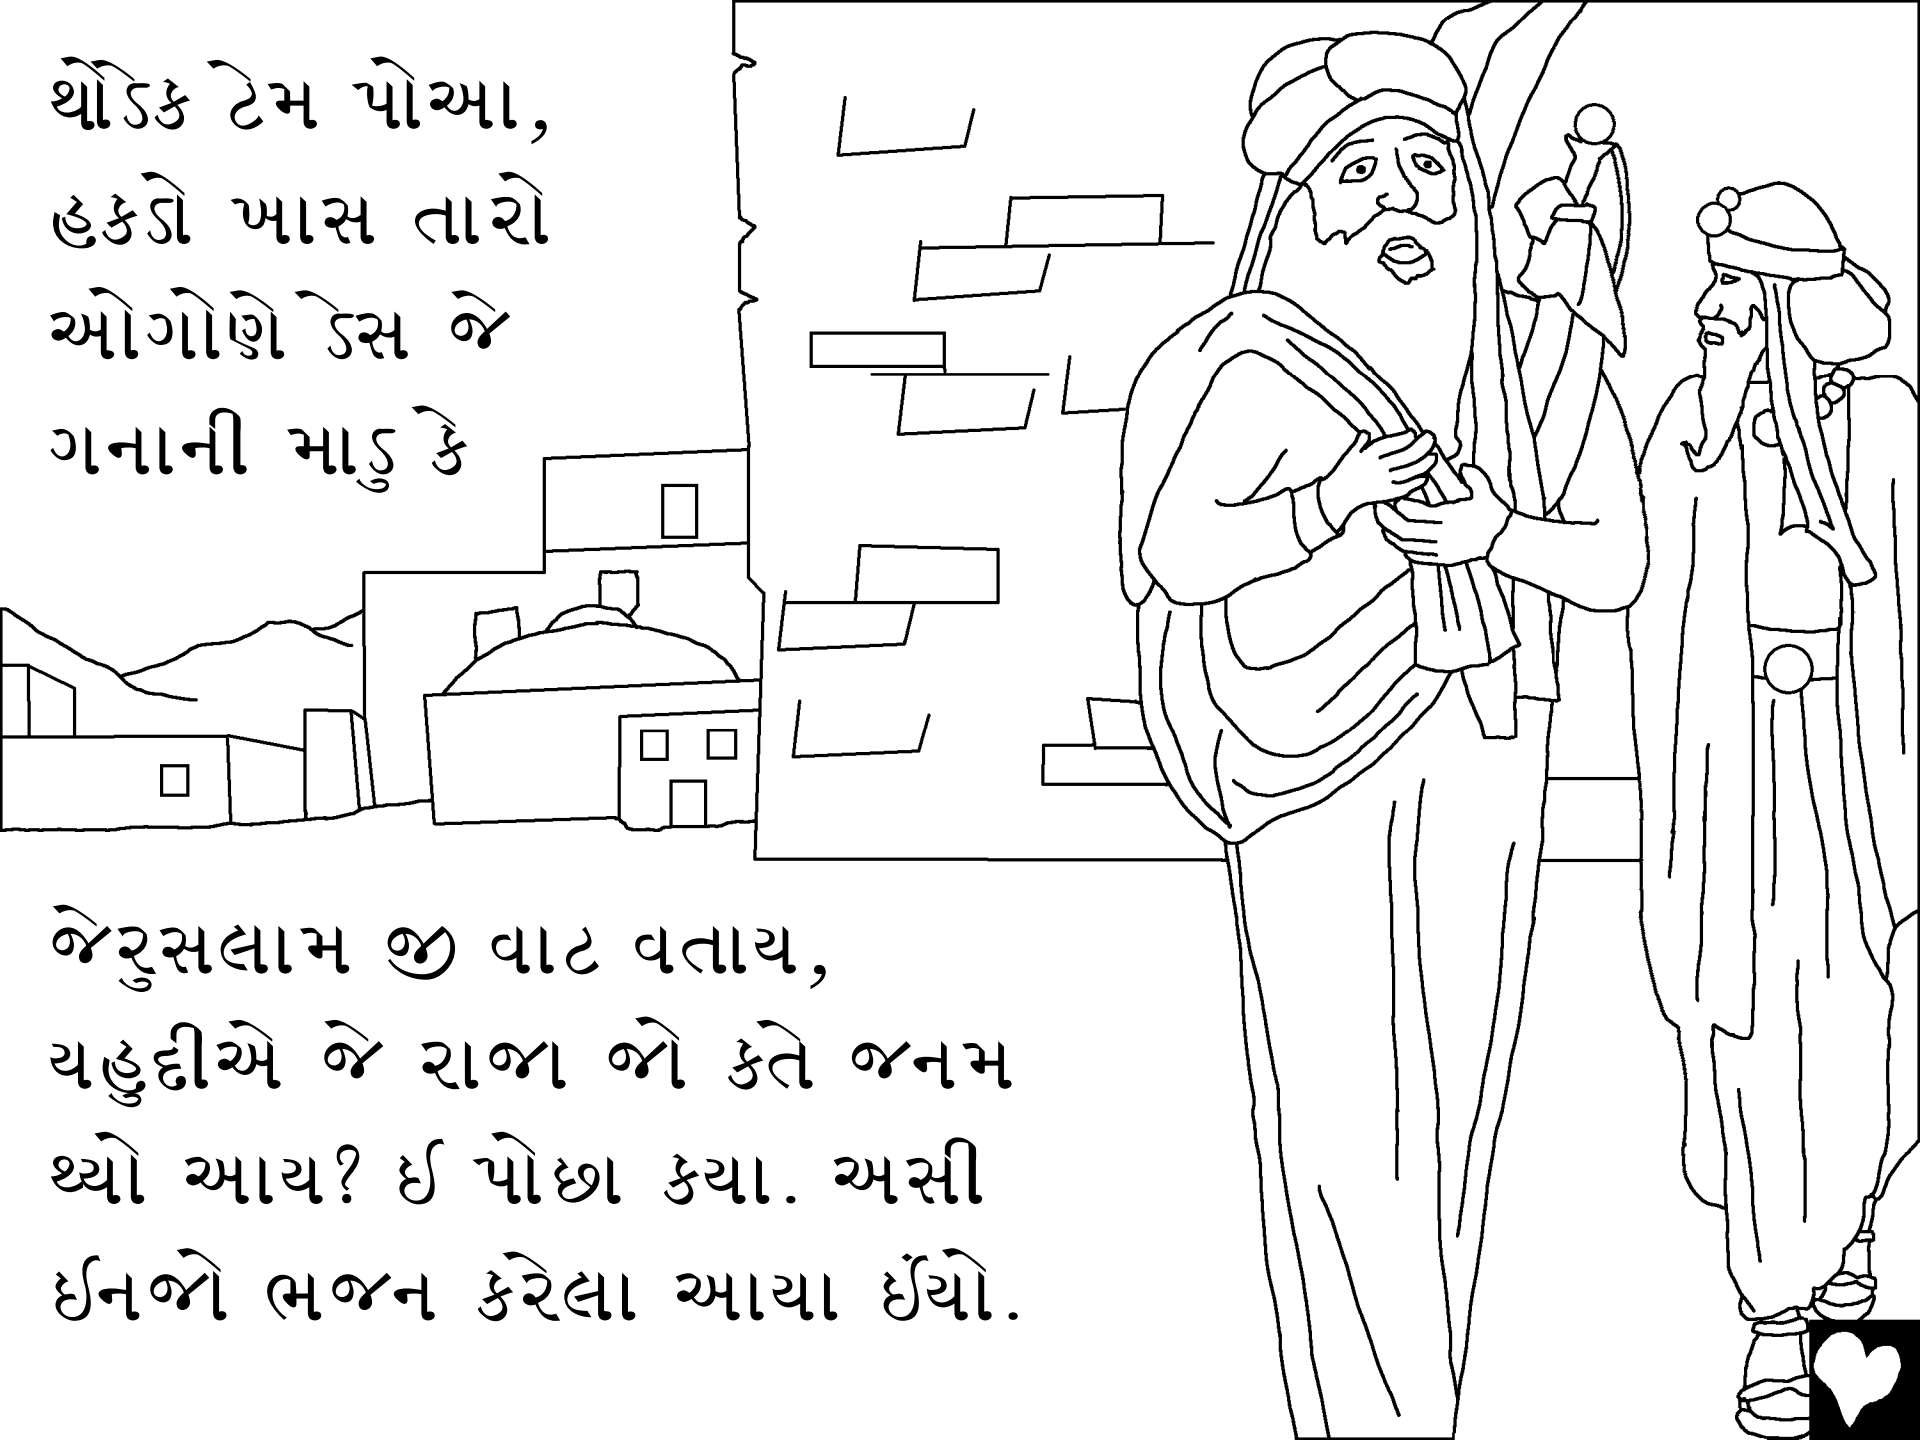 થોડેક ટેમ પોઆ,
હકડો ખાસ તારો
ઓગોણે ડેસ જે
ગનાની માડુ કે
જેરુસલામ જી વાટ વતાય,
યહુદીએ જે રાજા જો કતે જનમ
થ્યો આય? ઈ પોછા કયા. અસી
ઈનજો ભજન કરેલા આયા ઈંયો.